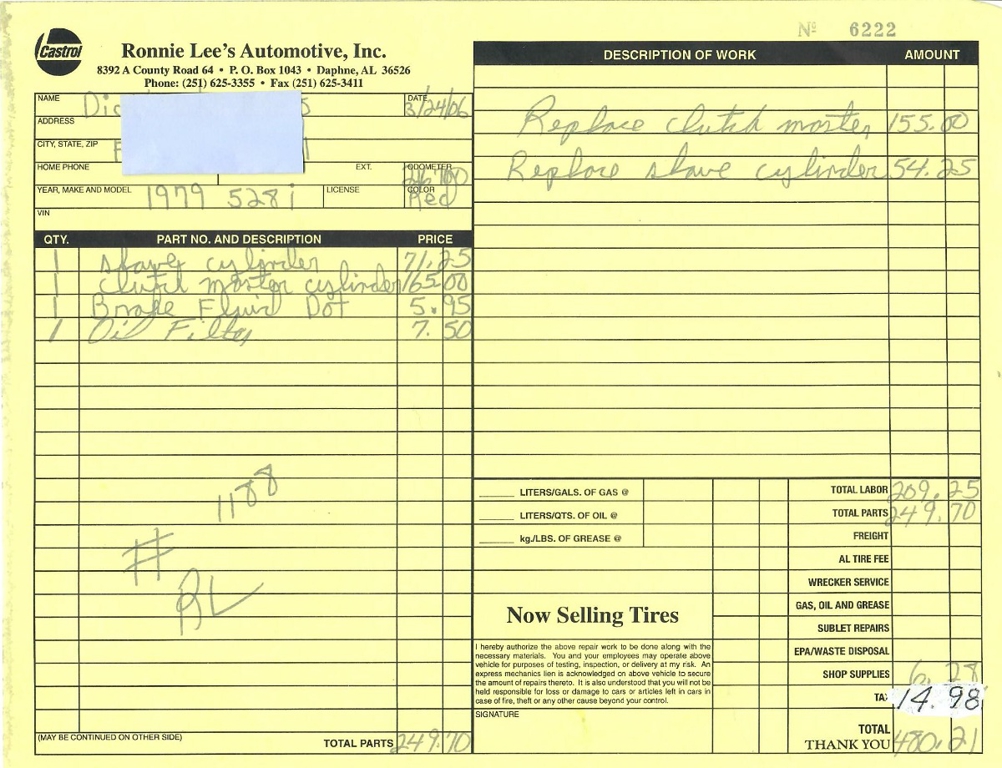 Castrol
Ronnie Lee's Automotive, Inc.
8392 A County Road 64 • P. O. Box 1043 • Daphne, AL 36526
Phone: (251) 625-3355 • Fax (251) 625-3411
NAME
DATE 3/24/06
ADDRESS
CITY, STATE, ZIP
HOME PHONE EXT. ODOMETER
YEAR, MAKE AND MODEL 1979 528i LICENSE COLOR Red
VIN
QTY. PART NO. AND DESCRIPTION PRICE
1 slave cylinder 71.25
1 clutch master cylinder 165.00
1 Brake Fluid Dot 5.95
1 Oil Filter 7.50
1188
#
RL
(MAY BE CONTINUED ON OTHER SIDE) TOTAL PARTS 249.70
Nº 6222
DESCRIPTION OF WORK AMOUNT
Replace clutch master 155.00
Replace slave cylinder 54.25
LITERS/GALS. OF GAS @
LITERS/QTS. OF OIL @
kg./LBS. OF GREASE @
Now Selling Tires
I hereby authorize the above repair work to be done along with the
necessary materials. You and your employees may operate above
vehicle for purposes of testing, inspection, or delivery at my risk. An
express mechanics lien is acknowledged on above vehicle to secure
the amount of repairs thereto. It is also understood that you will not be
held responsible for loss or damage to cars or articles left in cars in
case of fire, theft or any other cause beyond your control.
SIGNATURE
TOTAL LABOR 209.25
TOTAL PARTS 249.70
FREIGHT
AL TIRE FEE
WRECKER SERVICE
GAS, OIL AND GREASE
SUBLET REPAIRS
EPA/WASTE DISPOSAL
SHOP SUPPLIES 6.28
TAX 14.98
TOTAL 480.21
THANK YOU